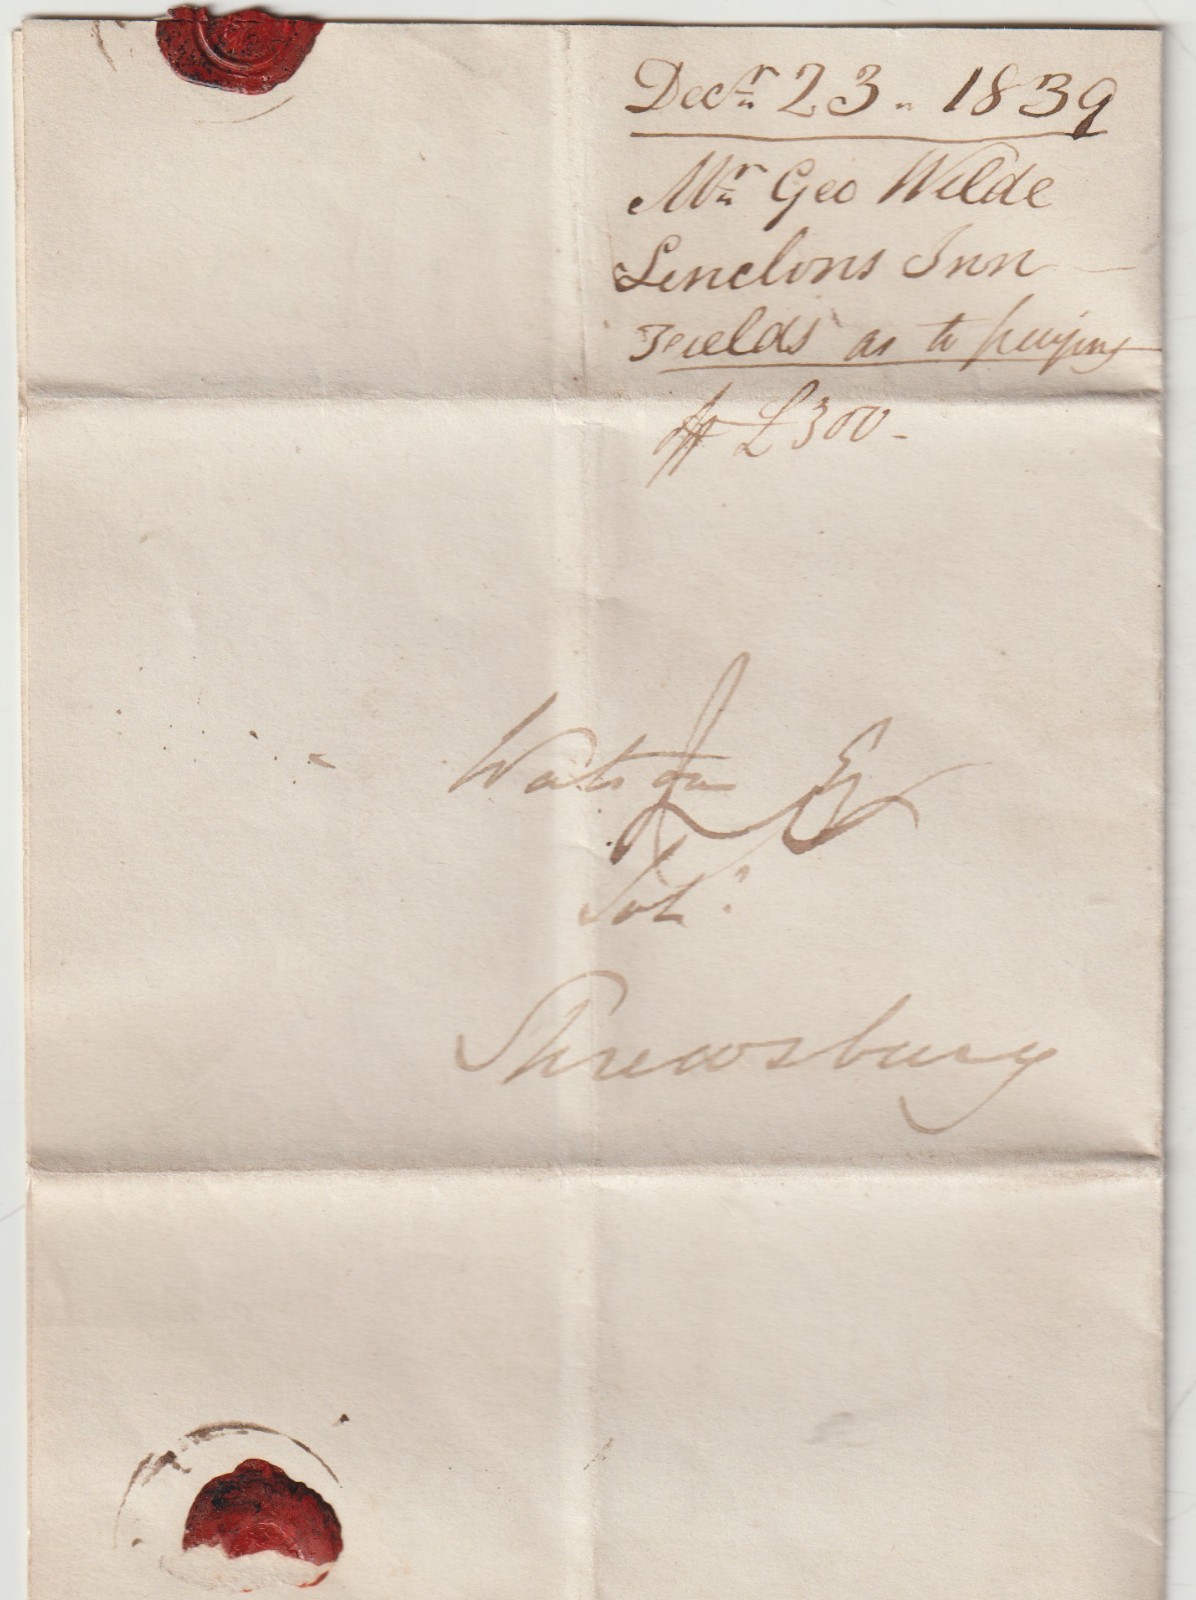 Decr 23 - 1839
Mr Geo Wilde
Linclons Inn
Fields as to paying
off £300 -
Watson Esq
Solr
Shrewsbury